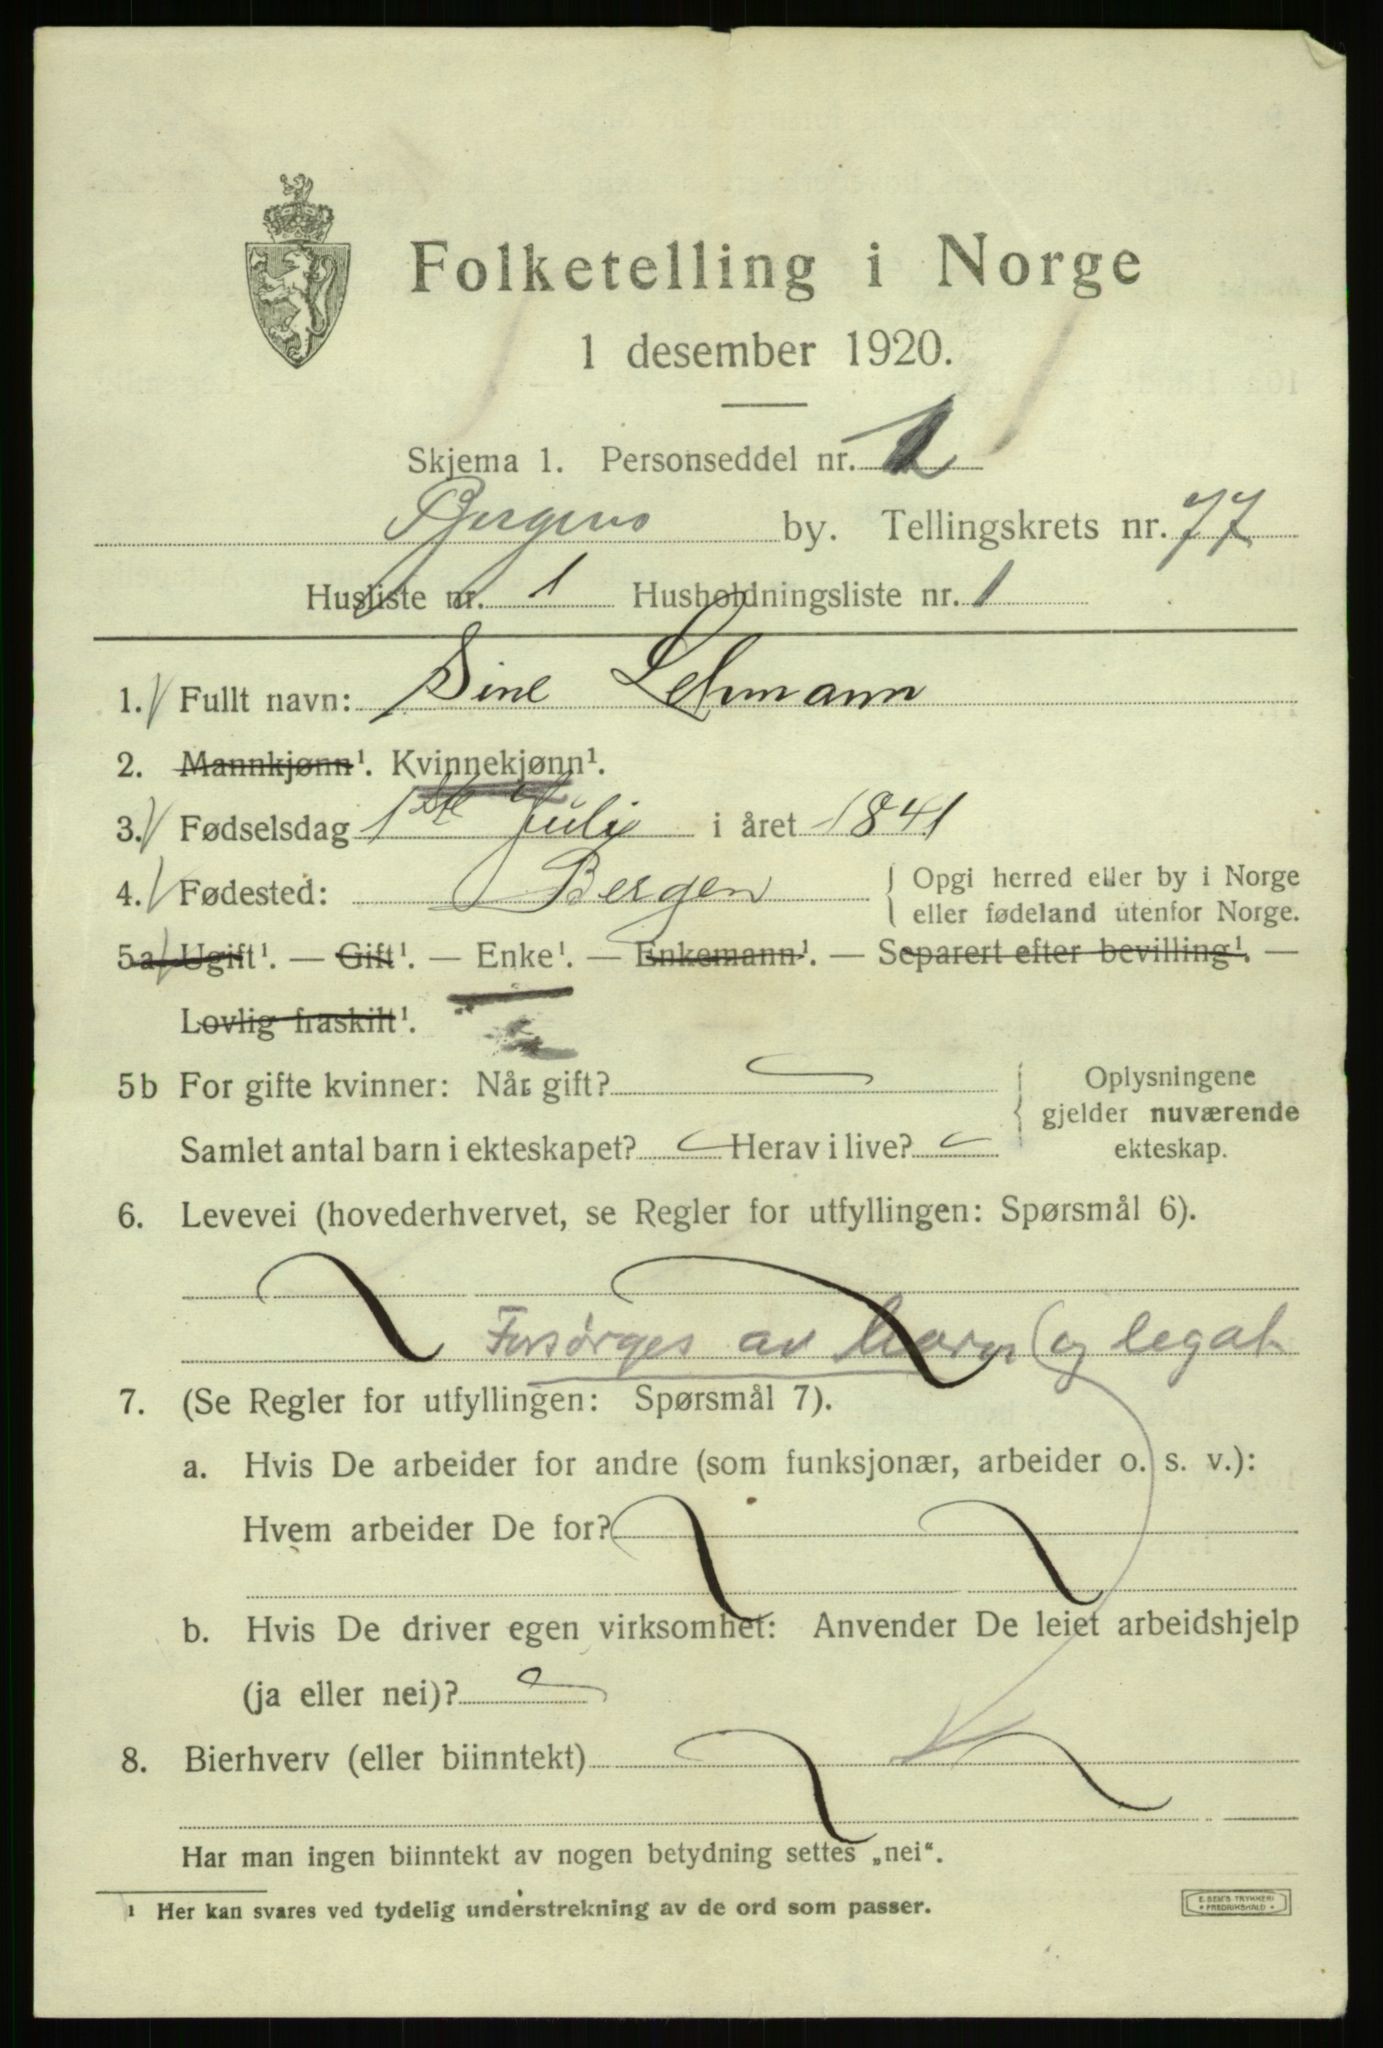 Folketelling i Norge
1 desember 1920.
Skjema 1. Personseddel nr. 1
Bergens by. Tellingskrets nr. 77
Husliste nr. 1 Husholdningsliste nr. 1
1. Fullt navn: Sine Lehmann
2. Mannkjønn¹. Kvinnekjønn¹.
3. Fødselsdag 1ste Juli i året 1841
4. Fødested: Bergen { Opgi herred eller by i Norge
eller fødeland utenfor Norge.
5a Ugift¹. — Gift¹. — Enke¹. — Enkemann¹. — Separert efter bevilling¹. —
Lovlig fraskilt¹.
5b For gifte kvinner: Når gift? { Oplysningene
gjelder nuværende
Samlet antal barn i ekteskapet? Herav i live? ekteskap.
6. Levevei (hovederhvervet, se Regler for utfyllingen: Spørsmål 6).
Forsørges av barn (og legat
7. (Se Regler for utfyllingen: Spørsmål 7).
a. Hvis De arbeider for andre (som funksjonær, arbeider o. s. v.):
Hvem arbeider De for?
b. Hvis De driver egen virksomhet: Anvender De leiet arbeidshjelp
(ja eller nei)?
8. Bierhverv (eller biinntekt)
Har man ingen biinntekt av nogen betydning settes „nei“.
¹ Her kan svares ved tydelig understrekning av de ord som passer.
E. SEM'S TRYKKERI
FREDRIKSHALD